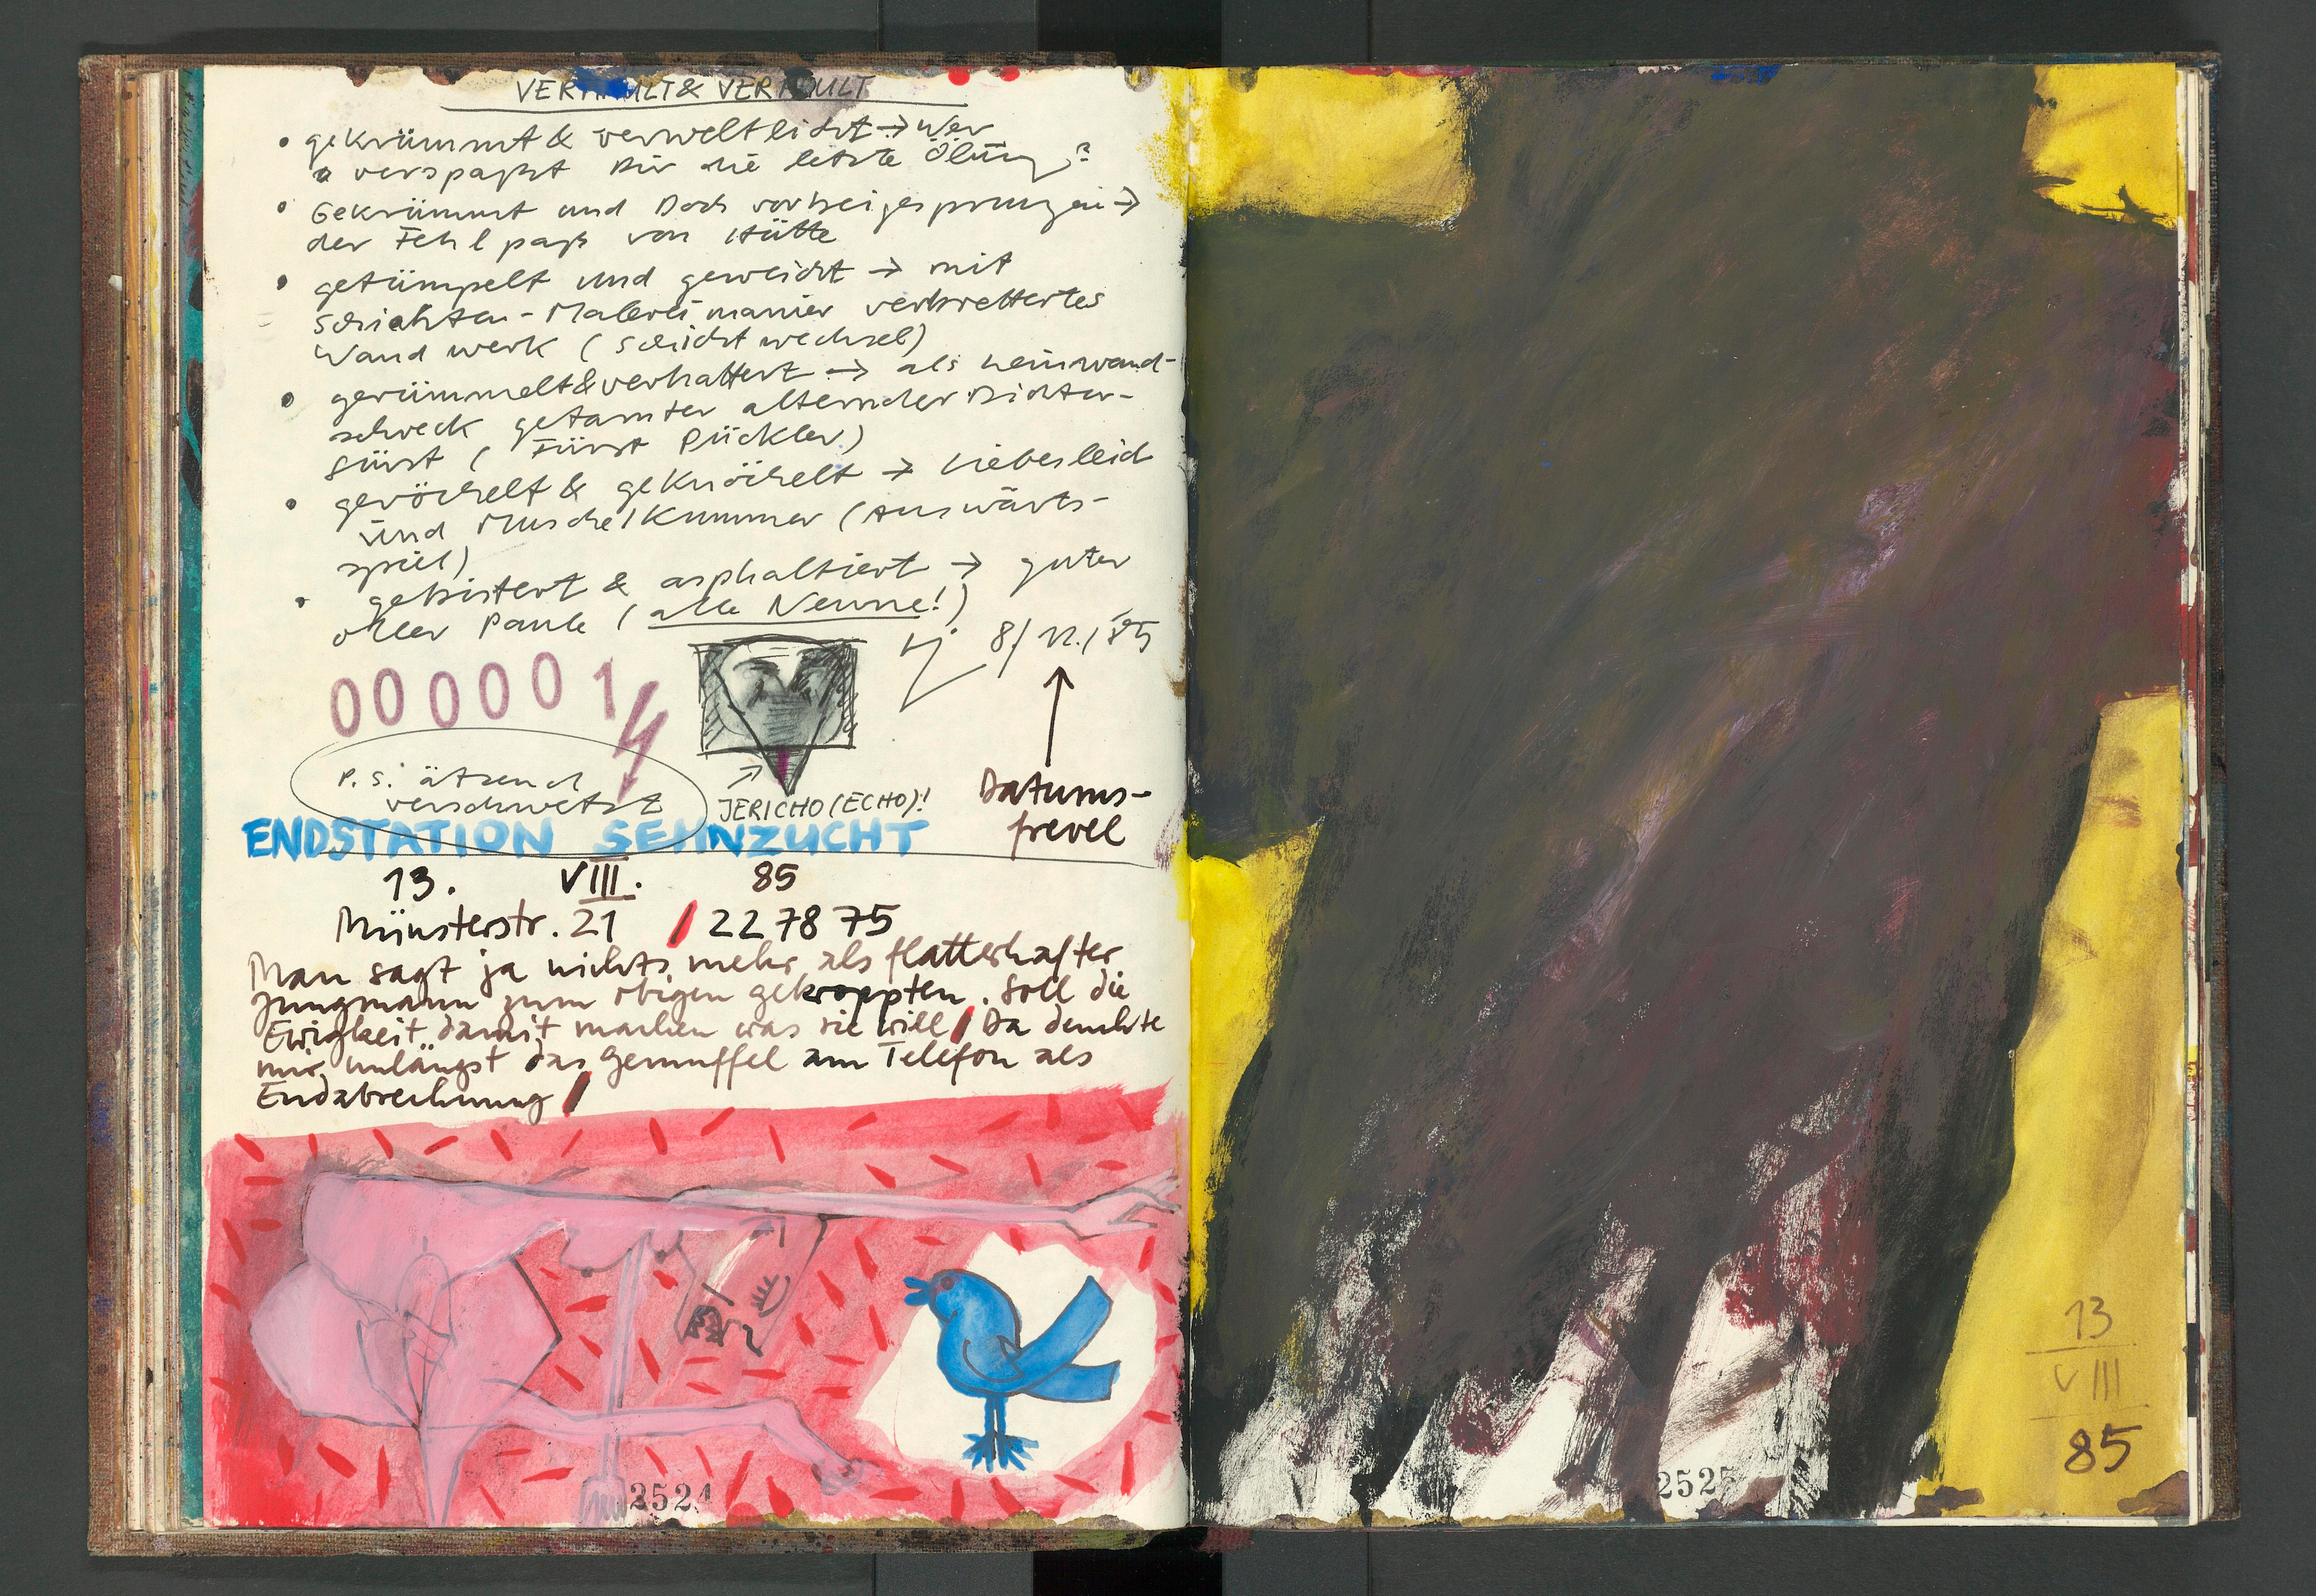 & VER
• gekrümmt & verweltlicht → Wer
verspaßt Dir die letzte Ölung?
• Gekrümmt und Doch vorbeigesprungen →
der Fehlpaß von Hütte
• getümpelt und geweicht → mit
Schichten-Malereimanier verbrettertes
Wandwerk (Schichtwechsel)
• gerümmelt & verhattert → als Leinwand-
schreck getarnter alternder Dichter-
fürst (Fürst Pückler)
• geröchelt & geknöchelt → Liebesleid
und Muschelkummer (Auswärts-
spiel)
• gebistert & asphaltiert → guter
oller Paule (alle Neune!)
8/12./85
000001
P.S. ätzend
verschwetzt
JERICHO (ECHO)!
Datums-
frevel
ENDSTATION SEHNZUCHT
13. VIII. 85
Münsterstr. 21 / 22 78 75
Man sagt ja nichts mehr als flatterhafter
Jungmann zum obigen gekroppten. Soll die
Ewigkeit damit machen was sie will / Da deuchte
mir unlängst das Gemuffel am Telefon als
Endabrechnung /
2524
13
VIII
85
2525